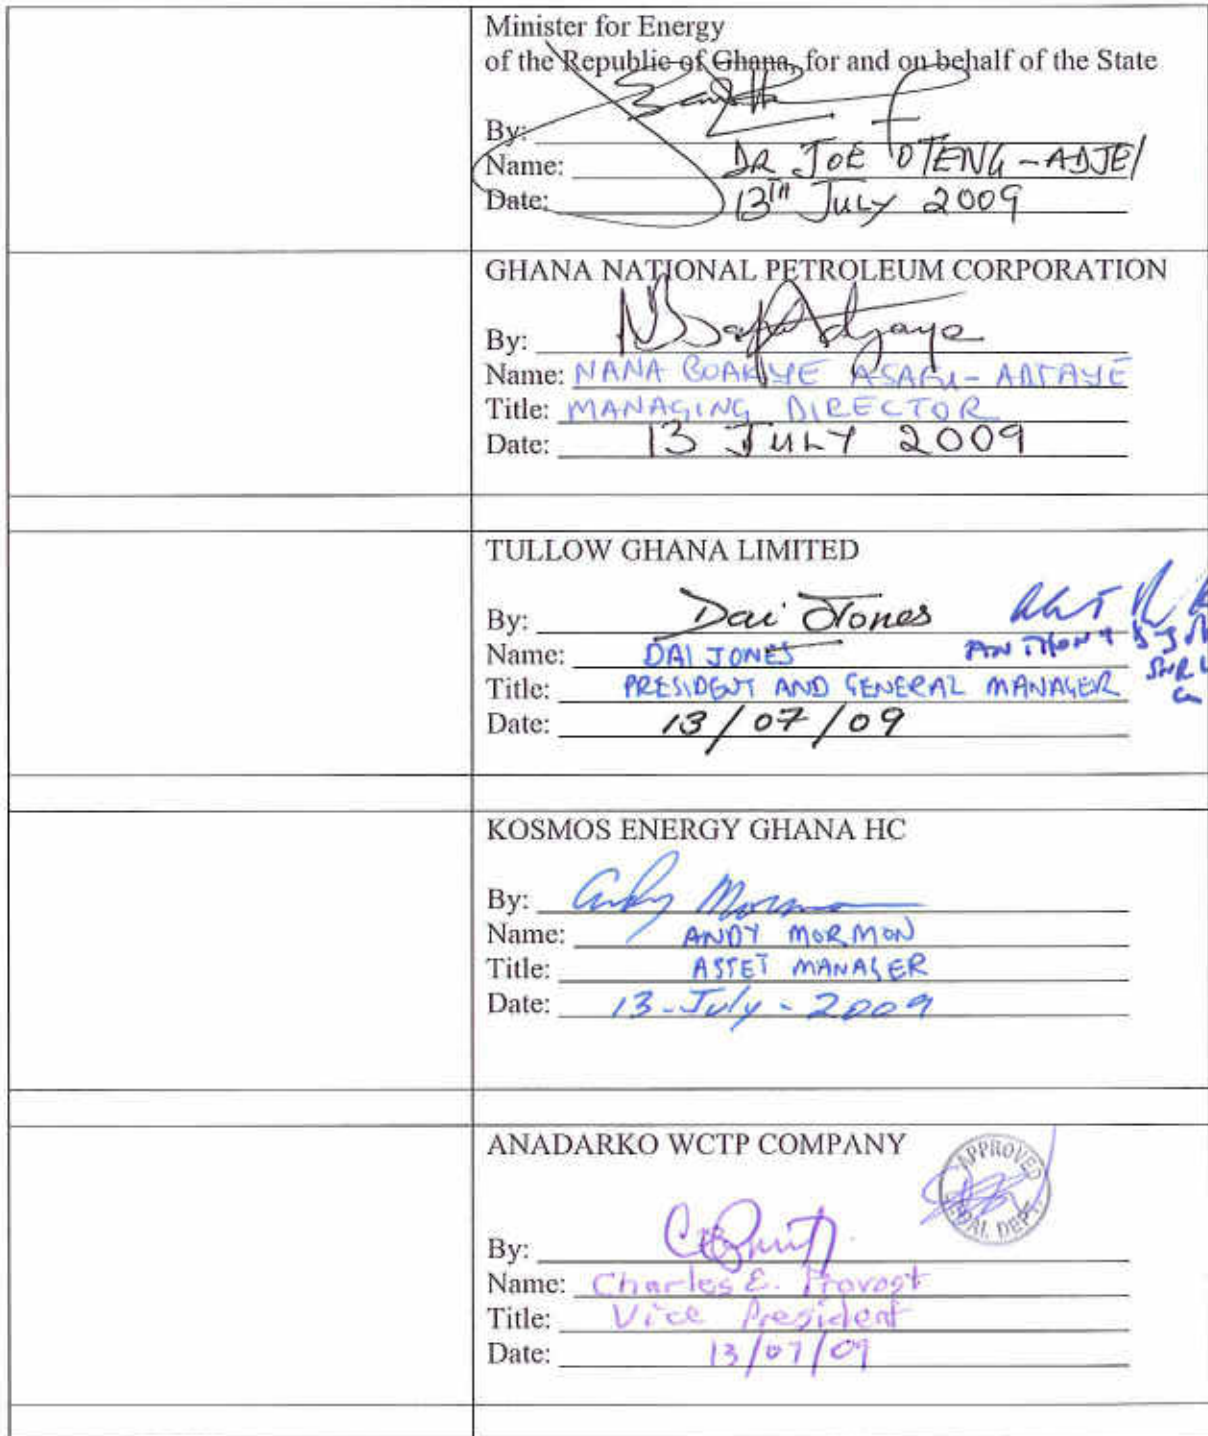 Minister for Energy
of the Republic of Ghana, for and on behalf of the State
By:
Name: DR JOE OTENG-ADJEI
Date: 13TH JULY 2009
GHANA NATIONAL PETROLEUM CORPORATION
By:
Name: NANA BOAKYE ASAFU-ADJAYE
Title: MANAGING DIRECTOR
Date: 13 JULY 2009
TULLOW GHANA LIMITED
By: Dai Jones
Name: DAI JONES
Title: PRESIDENT AND GENERAL MANAGER
Date: 13/07/09
KOSMOS ENERGY GHANA HC
By: Andy Mormon
Name: ANDY MORMON
Title: ASSET MANAGER
Date: 13-July-2009
ANADARKO WCTP COMPANY
APPROVED
LEGAL DEPT.
By:
Name: Charles E. Provost
Title: Vice President
Date: 13/07/09